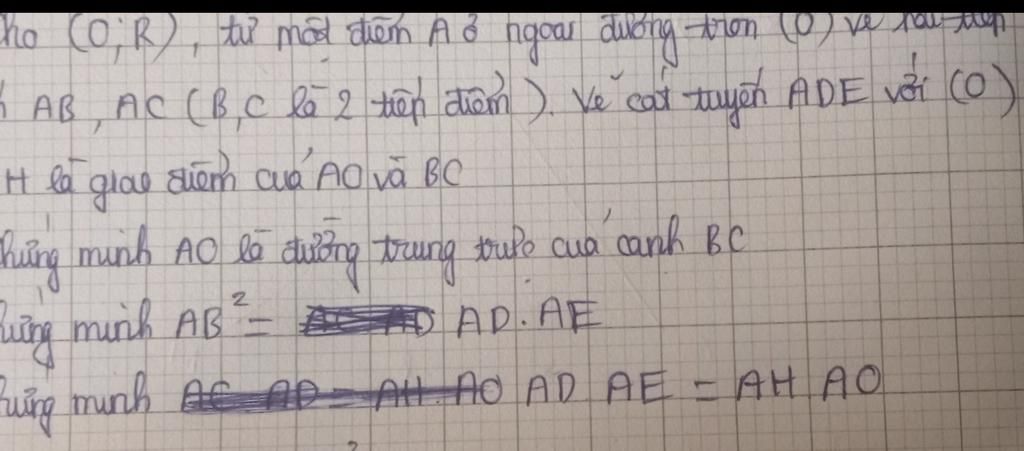 ho (O;R), từ một điểm A ở ngoài đường tròn (O) vẽ hai tiếp
AB, AC (B,C là 2 tiếp điểm). Vẽ cát tuyến ADE với (O)
H là giao điểm của AO và BC
hứng minh AO là đường trung trực của cạnh BC
hứng minh AB² = AD.AE
hứng minh AD AE = AH AO